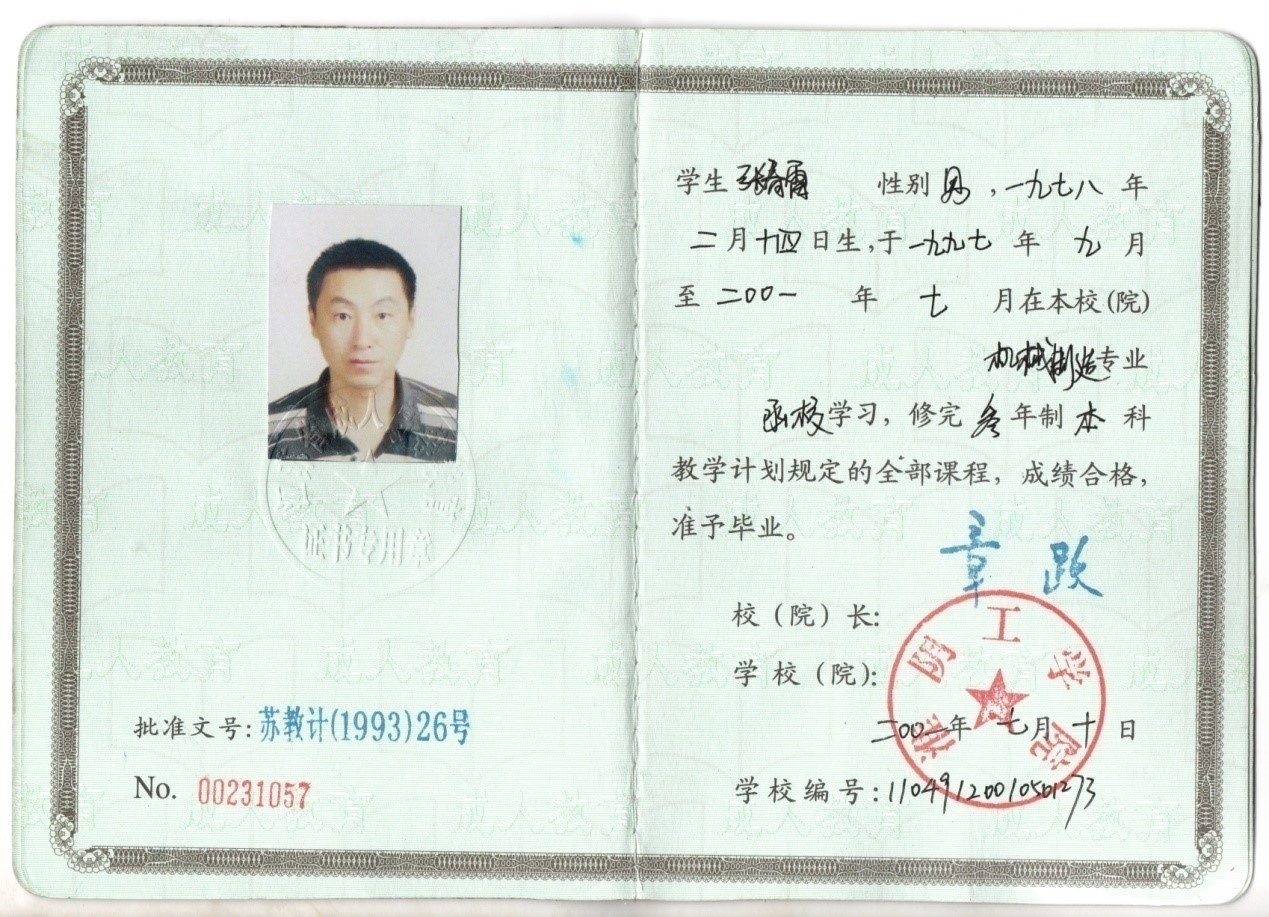 批准文号:苏教计(1993)26号
No. 00231057
证书专用章
学生 张春雷 性别 男 ,一九七八 年
二 月 十四 日生,于 一九九七 年 九 月
至 二00一 年 七 月在本校(院)
机械制造专业
函授学习, 修完 叁 年制 本 科
教学计划规定的全部课程, 成绩合格,
准予毕业。
章 跃
校 (院) 长:
学 校 (院):
淮阴工学院
二00一年 七月 十 日
学 校 编 号: 11049120010501273
成人教育